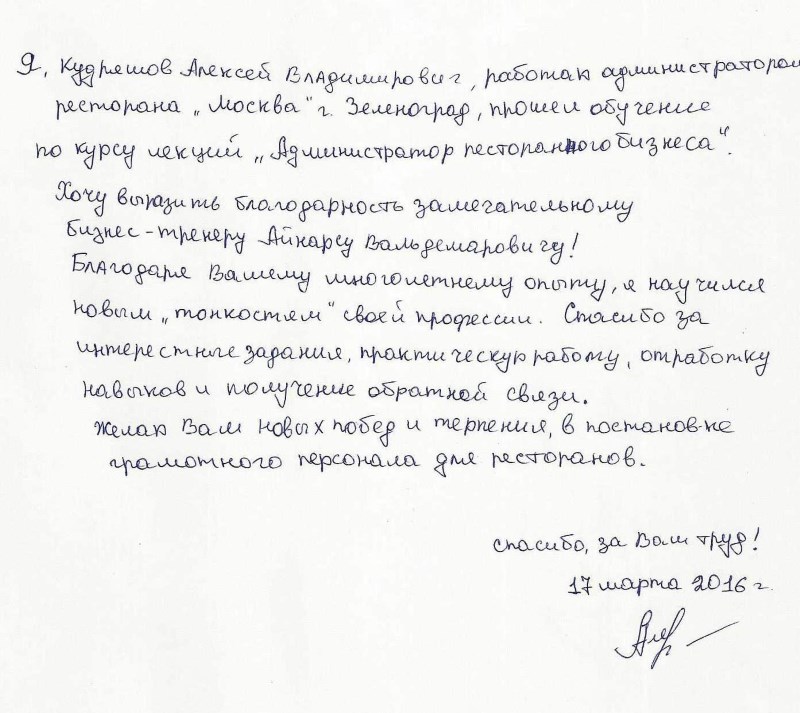 Я, Кудряшов Алексей Владимирович, работаю администратором
ресторана „Москва" г. Зеленоград, прошел обучение
по курсу лекций „Администратор ресторанного бизнеса".
Хочу выразить благодарность замечательному
бизнес-тренеру Айнарсу Вальдемаровичу!
Благодаря Вашему многолетнему опыту, я научился
новым „тонкостям" своей профессии. Спасибо за
интерестные задания, практическую работу, отработку
навыков и получение обратной связи.
Желаю Вам новых побед и терпения, в постановке
грамотного персонала для ресторанов.
спасибо, за Ваш труд!
17 марта 2016 г.